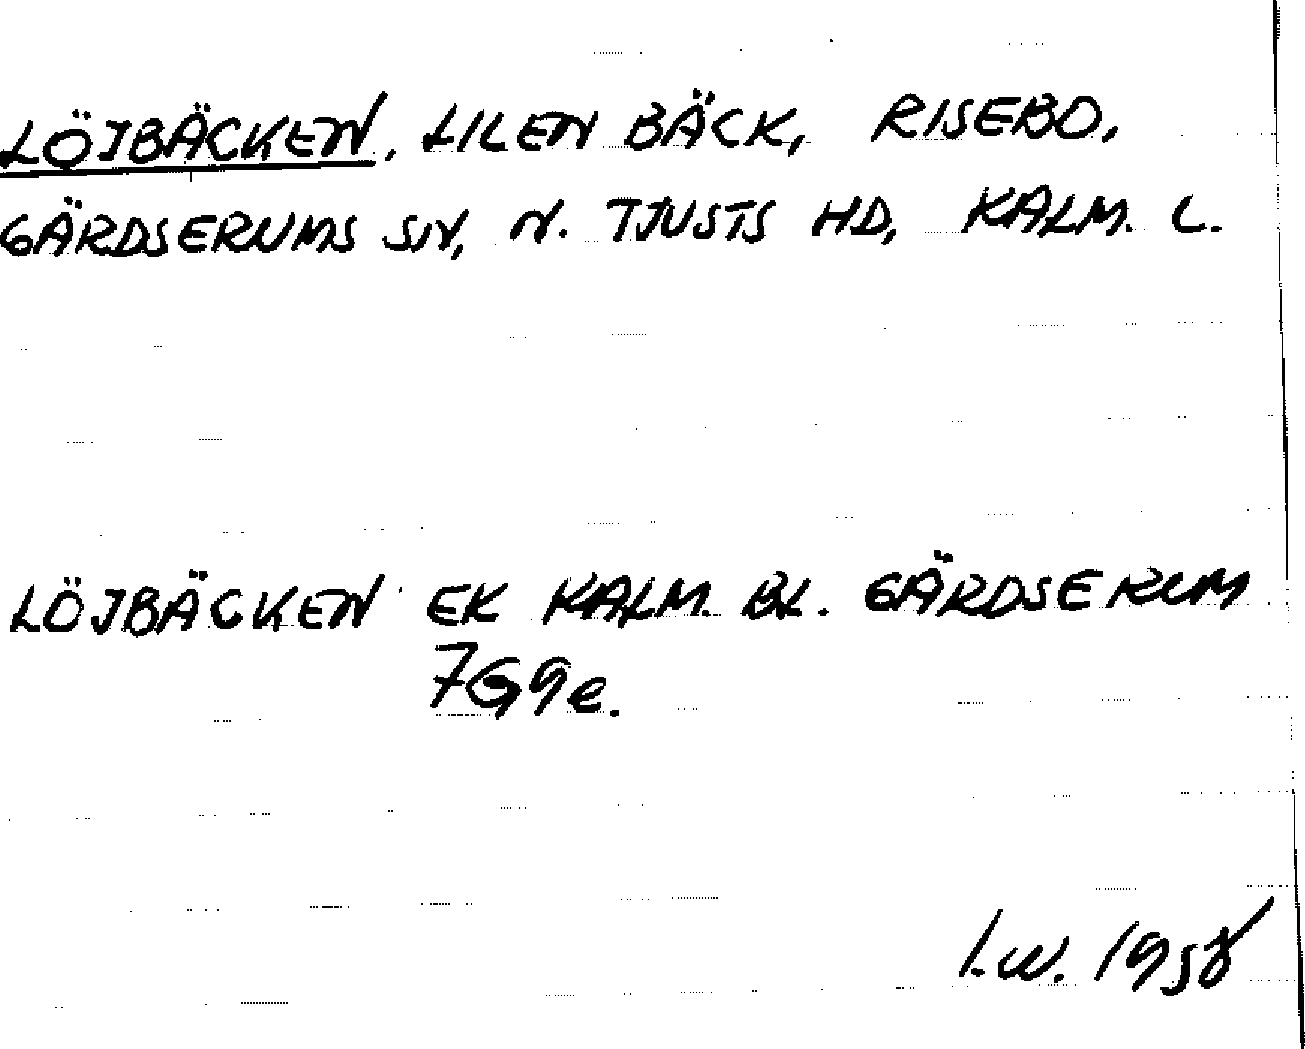 LÖJBÄCKEN, LILEN BÄCK, RISEBO,
GÄRDSERUMS SN, N. TJUSTS HD, KALM. L.
LÖJBÄCKEN EK KALM. BL. GÄRDSERUM
7G9e.
I.W. 1958